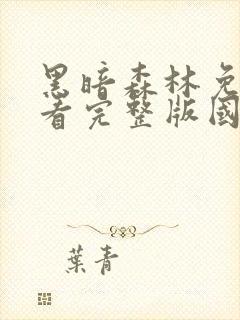 黑暗森林免
看完整版國
葉青